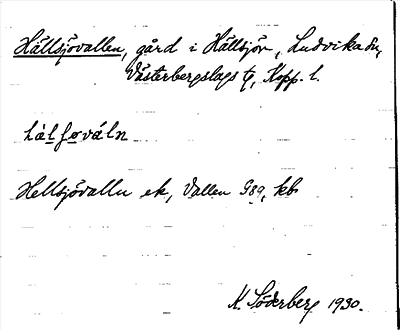 Hällsjövallen, gård i Hällsjön, Ludvika sn,
Västerbergslags tg, Kopp. l.
hàl ʃøváln
Hellsjövalln ek, Vallen G89, kb
K. Söderberg 1930.